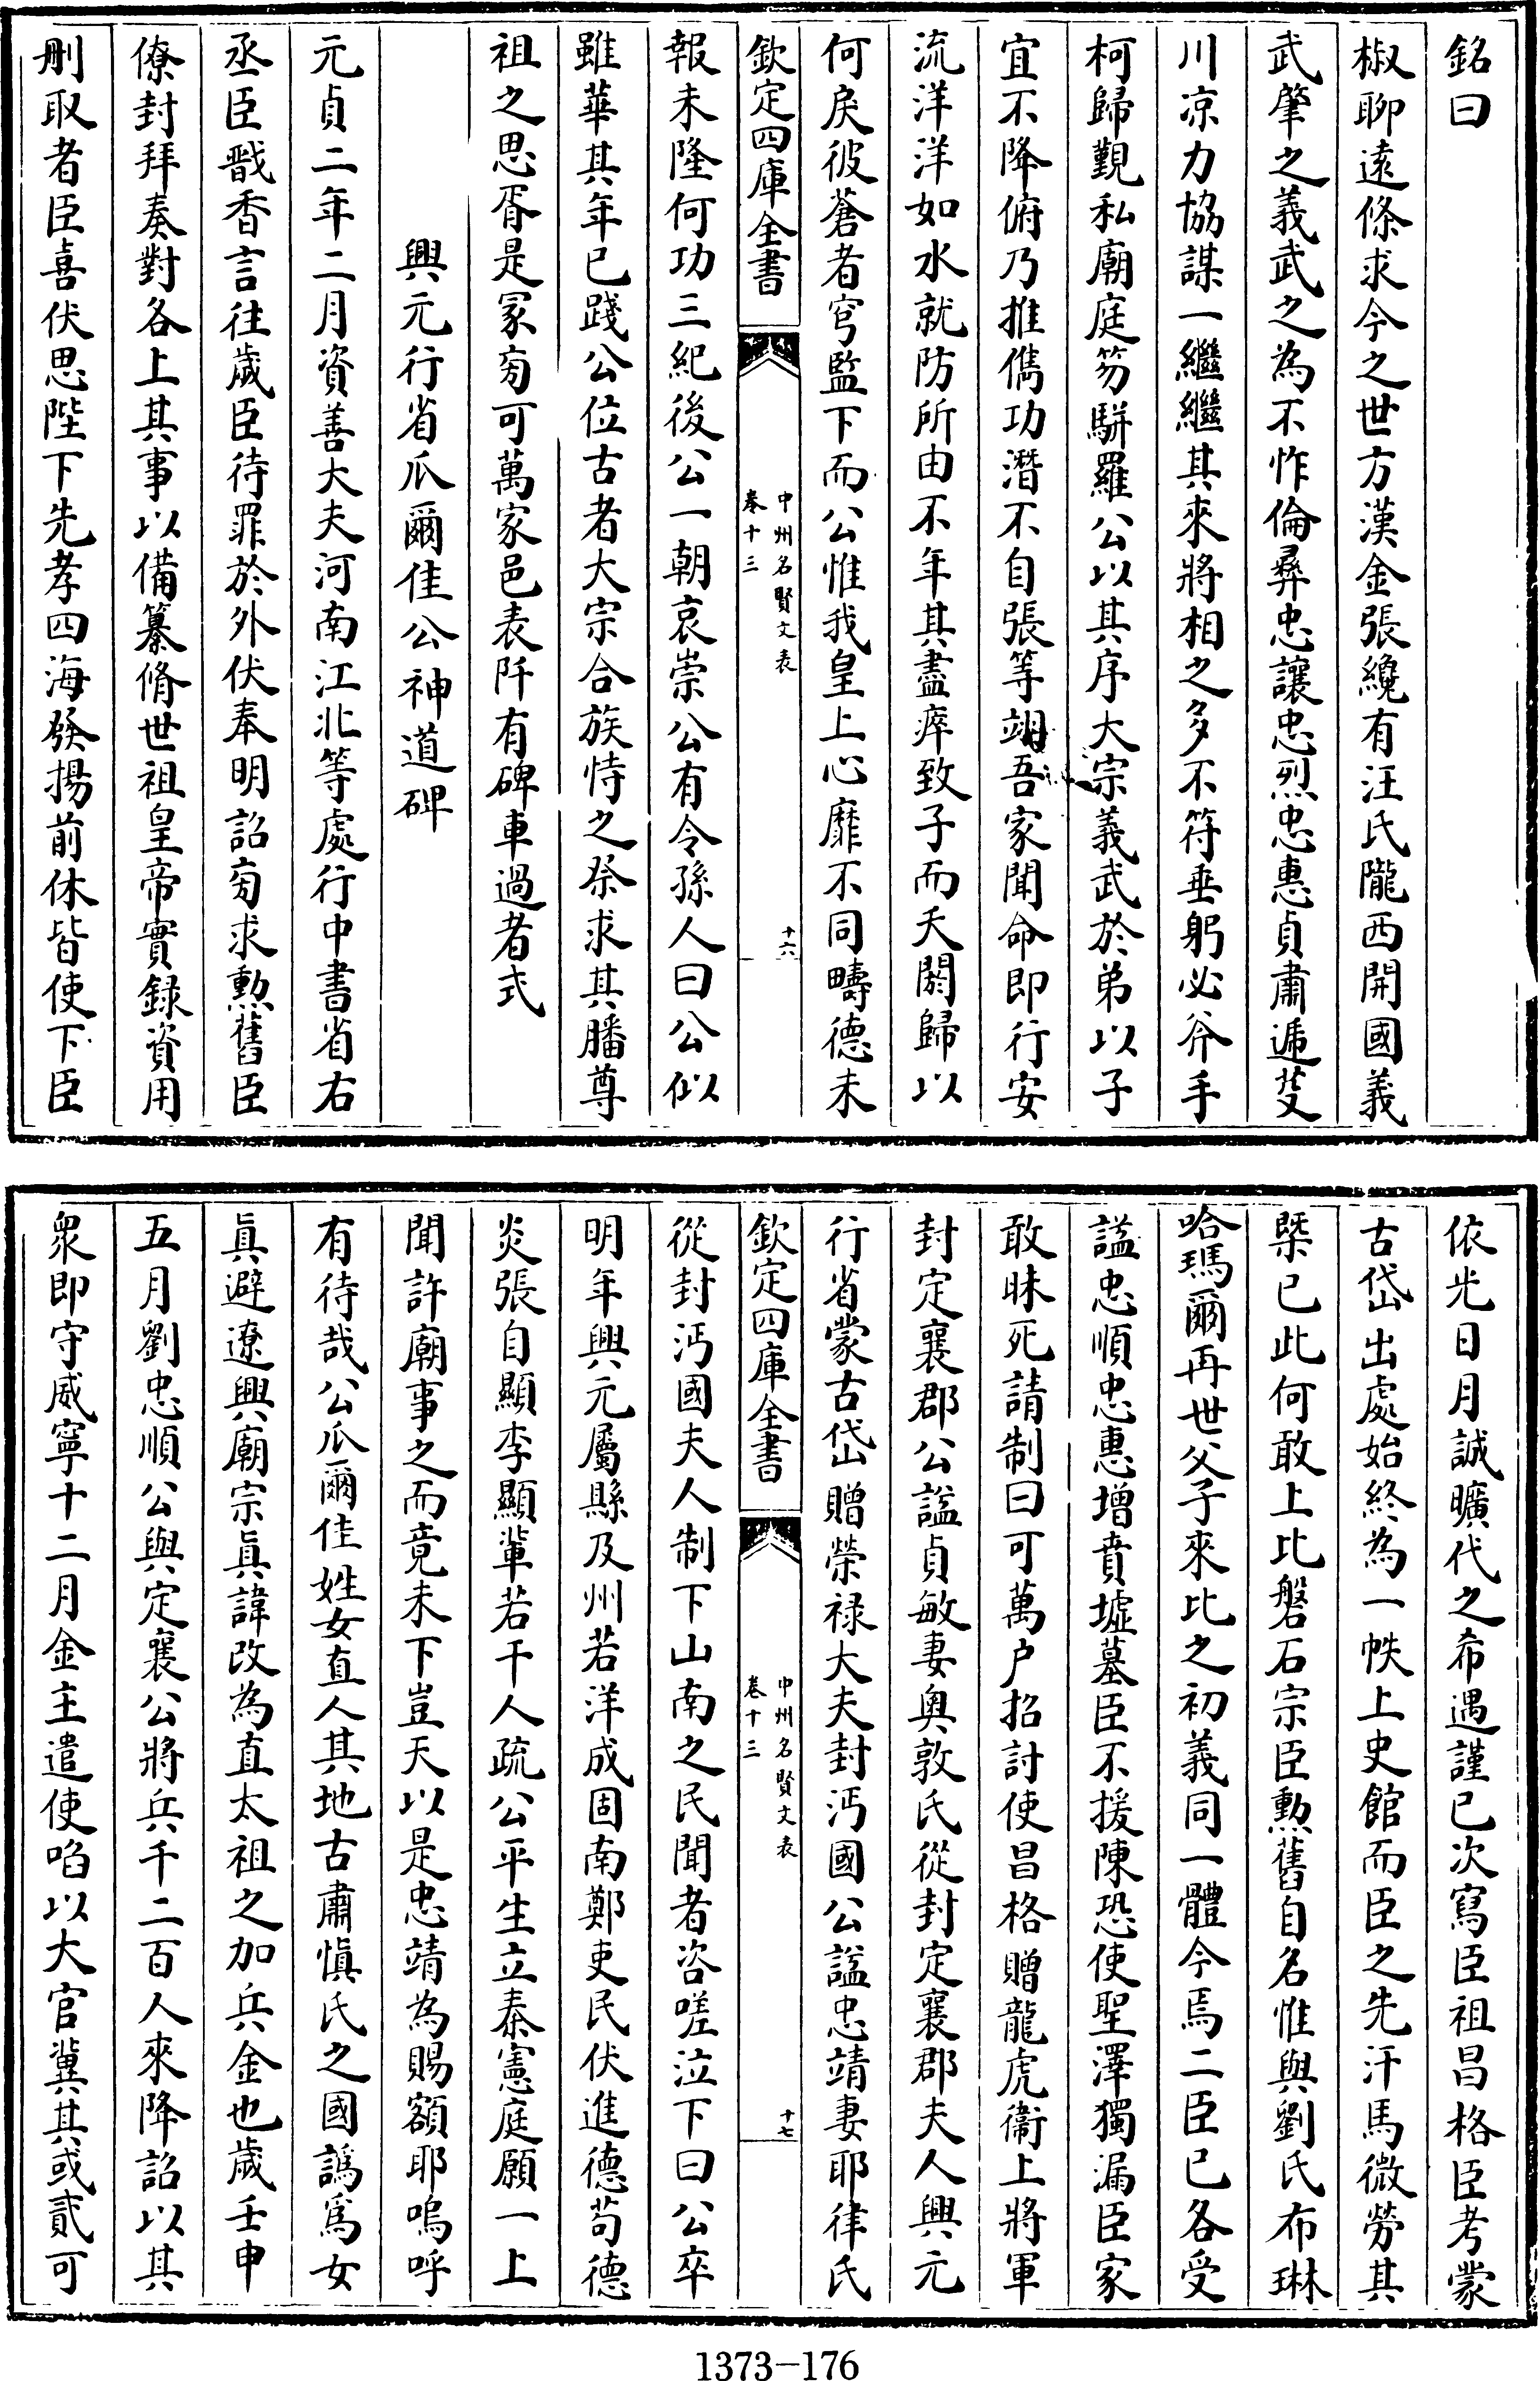 銘曰
椒聊逺條求今之世方漢金張纔有汪氏隴西開國義
武肇之義武之為不怍倫彞忠讓忠烈忠惠貞肅遞芟
川凉力協謀一繼繼其來將相之多不符垂躬必斧手
柯歸覲私廟庭笏駢羅公以其序大宗義武於弟以子
宜不降俯乃推儁功潛不自張等翊吾家聞命即行安
流洋洋如水就防所由不年其盡瘁致子而夭閼歸以
何戾彼蒼者穹監下而公惟我皇上心靡不同疇德未
欽定四庫全書
中州名賢文表
卷十三
十六
報未隆何功三紀後公一朝哀崇公有令孫人曰公似
雖華其年已踐公位古者大宗合族恃之祭求其膰尊
祖之思胥是冢旁可萬家邑表阡有碑車過者式
興元行省瓜爾佳公神道碑
元貞二年二月資善大夫河南江北等處行中書省右
丞臣戩香言往歲臣待罪於外伏奉明詔旁求勲舊臣
僚封拜奏對各上其事以備纂脩世祖皇帝實録資用
刪取者臣喜伏思陛下先孝四海發揚前休皆使下臣
依光日月誠曠代之希遇謹已次寫臣祖昌格臣考蒙
古岱出處始終為一帙上史館而臣之先汗馬微勞其
槩已此何敢上比磐石宗臣勲舊自名惟與劉氏布琳
哈瑪爾再世父子來比之初義同一體今焉二臣已各受
諡忠順忠惠增賁墟墓臣不援陳恐使聖澤獨漏臣家
敢昧死請制曰可萬户招討使昌格贈龍虎衞上將軍
封定襄郡公諡貞敏妻奥敦氏從封定襄郡夫人興元
行省蒙古岱贈榮禄大夫封沔國公諡忠靖妻耶律氏
欽定四庫全書
中州名賢文表
卷十三
十七
從封沔國夫人制下山南之民聞者咨嗟泣下曰公卒
明年興元屬縣及州若洋成固南鄭吏民伏進德茍德
炎張自顯李顯輩若干人疏公平生立秦憲庭願一上
聞許廟事之而竟未下豈天以是忠靖為賜額耶嗚呼
有待哉公瓜爾佳姓女直人其地古肅愼氏之國譌爲女
眞避遼興廟宗眞諱改為直太祖之加兵金也歲壬申
五月劉忠順公與定襄公將兵千二百人來降詔以其
衆即守威寧十二月金主遣使啗以大官冀其或貳可
1373-176